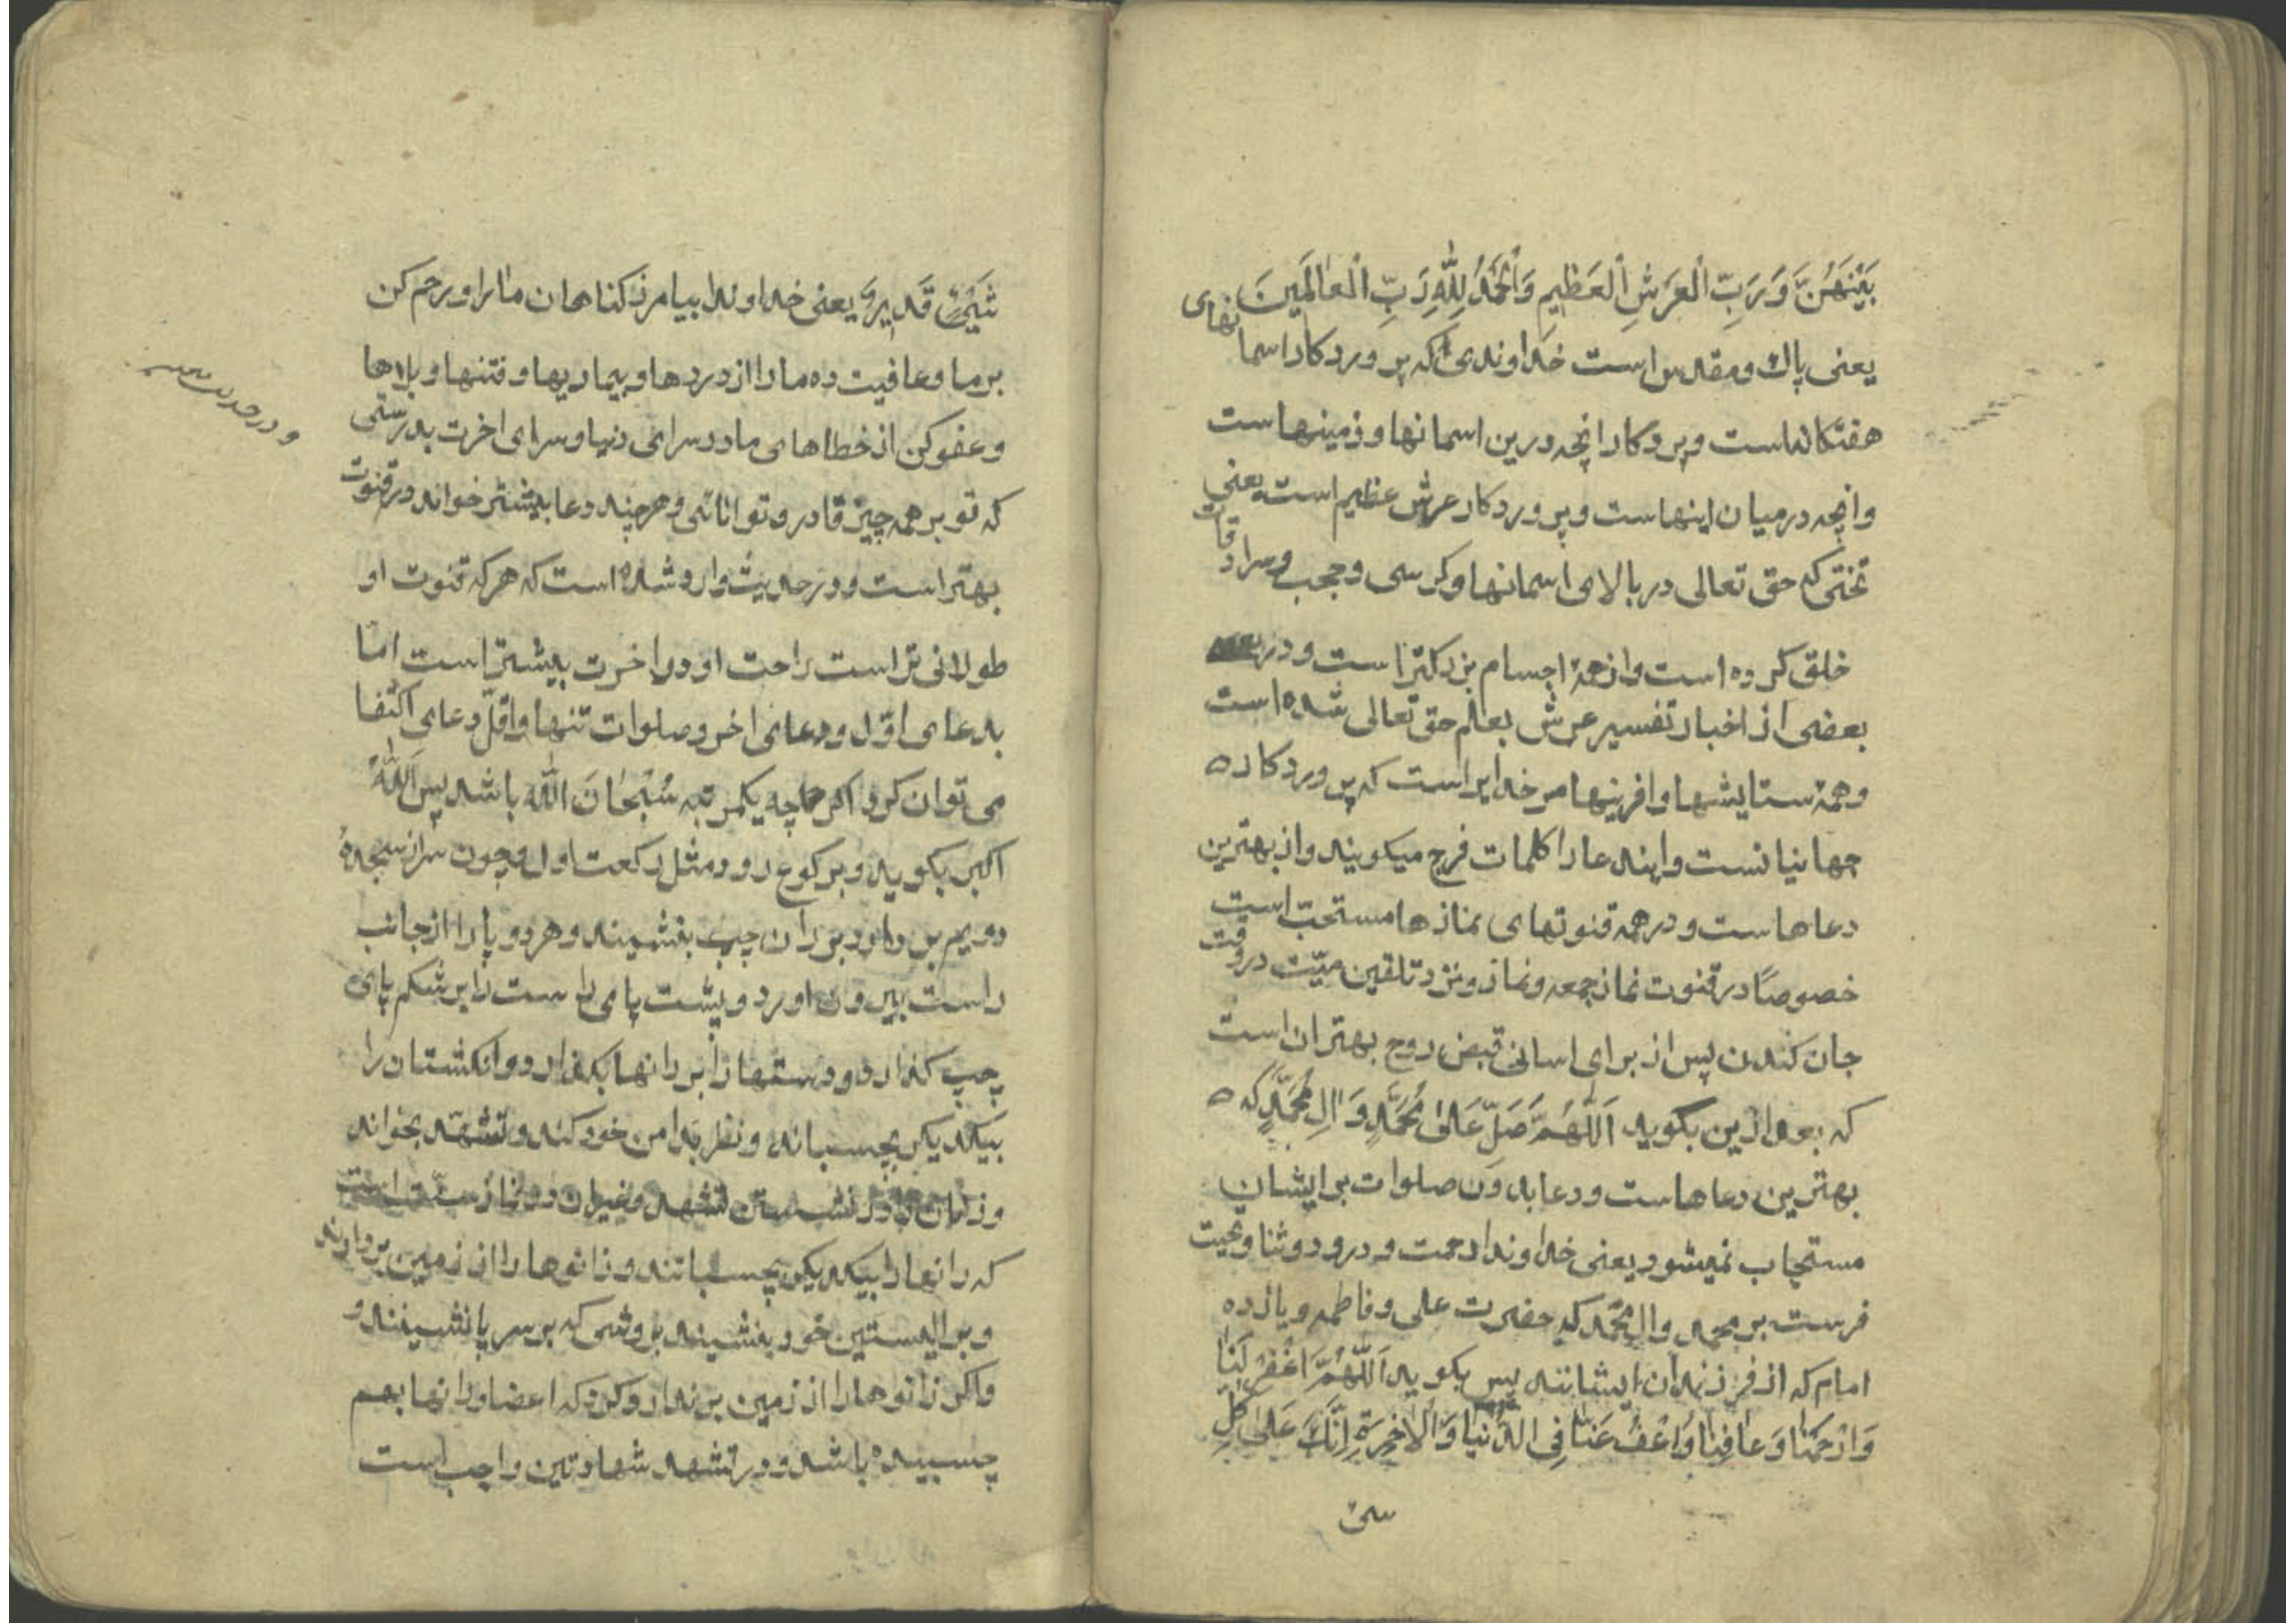 بَيْنَهُنَّ وَرَبِّ الْعَرْشِ الْعَظِيمِ وَالْحَمْدُ لِلّٰهِ رَبِّ الْعَالَمِينَ
يعنى پاك و مقدس است خداوندى كه پروردكار اسمانهاى
هفتكانه است و پروردكار انچه درين اسمانها و زمينهاست
و انچه در ميان اينهاست و پروردكار عرش عظيم است يعنى
تختى كه حق تعالى در بالاى اسمانها و كرسى و حجب و سرادقات
خلق كرده است و از همهٔ اجسام بزركتر است و در
بعضى از اخبار تفسير عرش بعلم حق تعالى شده است
و همهٔ ستايشها و افرينها مر خدايراست كه پروردكار
جهانيانست و ايندعا را كلمات فرج ميكويند و از بهترين
دعاهاست و در همه قنوتهاى نمازها مستحبّ است
خصوصًا در قنوت نماز جمعه و نماز وتر و نزد تلقين ميّت در وقت
جان كندن پس از براى اسانى قبض روح بهتر ان است
كه بعد ازين بكويد اَللّٰهُمَّ صَلِّ عَلىٰ مُحَمَّدٍ وَ اٰلِ مُحَمَّدٍ كه
بهترين دعاهاست و دعا بدون صلوات بر ايشان
مستجاب نميشود يعنى خداوندا رحمت و درود و ثنا و تحيت
فرست بر محمد و ال محمّد كه حضرت على و فاطمه و يازده
امام كه از فرزندان ايشانند پس بكويد اَللّٰهُمَّ اغْفِرْ لَنَا
وَارْحَمْنَا وَعَافِنَا وَاعْفُ عَنَّا فِى الدُّنْيَا وَالْاٰخِرَةِ اِنَّكَ عَلىٰ كُلِّ
شىء
شَيْءٍ قَدِيرٌ يعنى خداوندا بيامرز كناهان ما را و رحم كن
بر ما و عافيت ده ما را از دردها و بيماريها و فتنها و بلاها
و عفو كن از خطاهاى ما در سراى دنيا و سراى اخرت بدرستى
كه تو بر همه چيز قادر و توانائى و هر چند دعا بيشتر خواند در قنوت
بهتر است و در حديث وارد شده است كه هر كه قنوت او
طولانى تر است راحت او در اخرت بيشتر است امّا
بدعاى اوّل و دعاى اخر و صلوات تنها و اقلّ دعاى اكتفا
مى توان كرد اكرچه يكمرتبه سُبْحَانَ اللّٰه باشد پس اَللّٰهُ
اكبر بكويد و بركوع رود مثل ركعت اول و چون سر از سجدهٔ
دويم بر دارد بر ران چپ بنشيند و هر دو پا را از جانب
راست بيرون اورد و پشت پاى راست را بر شكم پاى
چپ كذارد و دستها را بر رانها بكذارد و انكشتان را
بيكديكر بچسباند و نظر بدامن خود كند و تشهد بخواند
و زنان را در نشستن تشهد و غير ان در نماز سنّت است
كه رانها را بيكديكر بچسبانند و زانوها را از زمين بردارند
و بر اليتين خود بنشيند بروشى كه بر سر پا نشينند و
و اكر زانوها را از زمين برندارد كه اعضا و رانها بهم
چسبيده باشد و در تشهد شهادتين واجب است
و در حديث